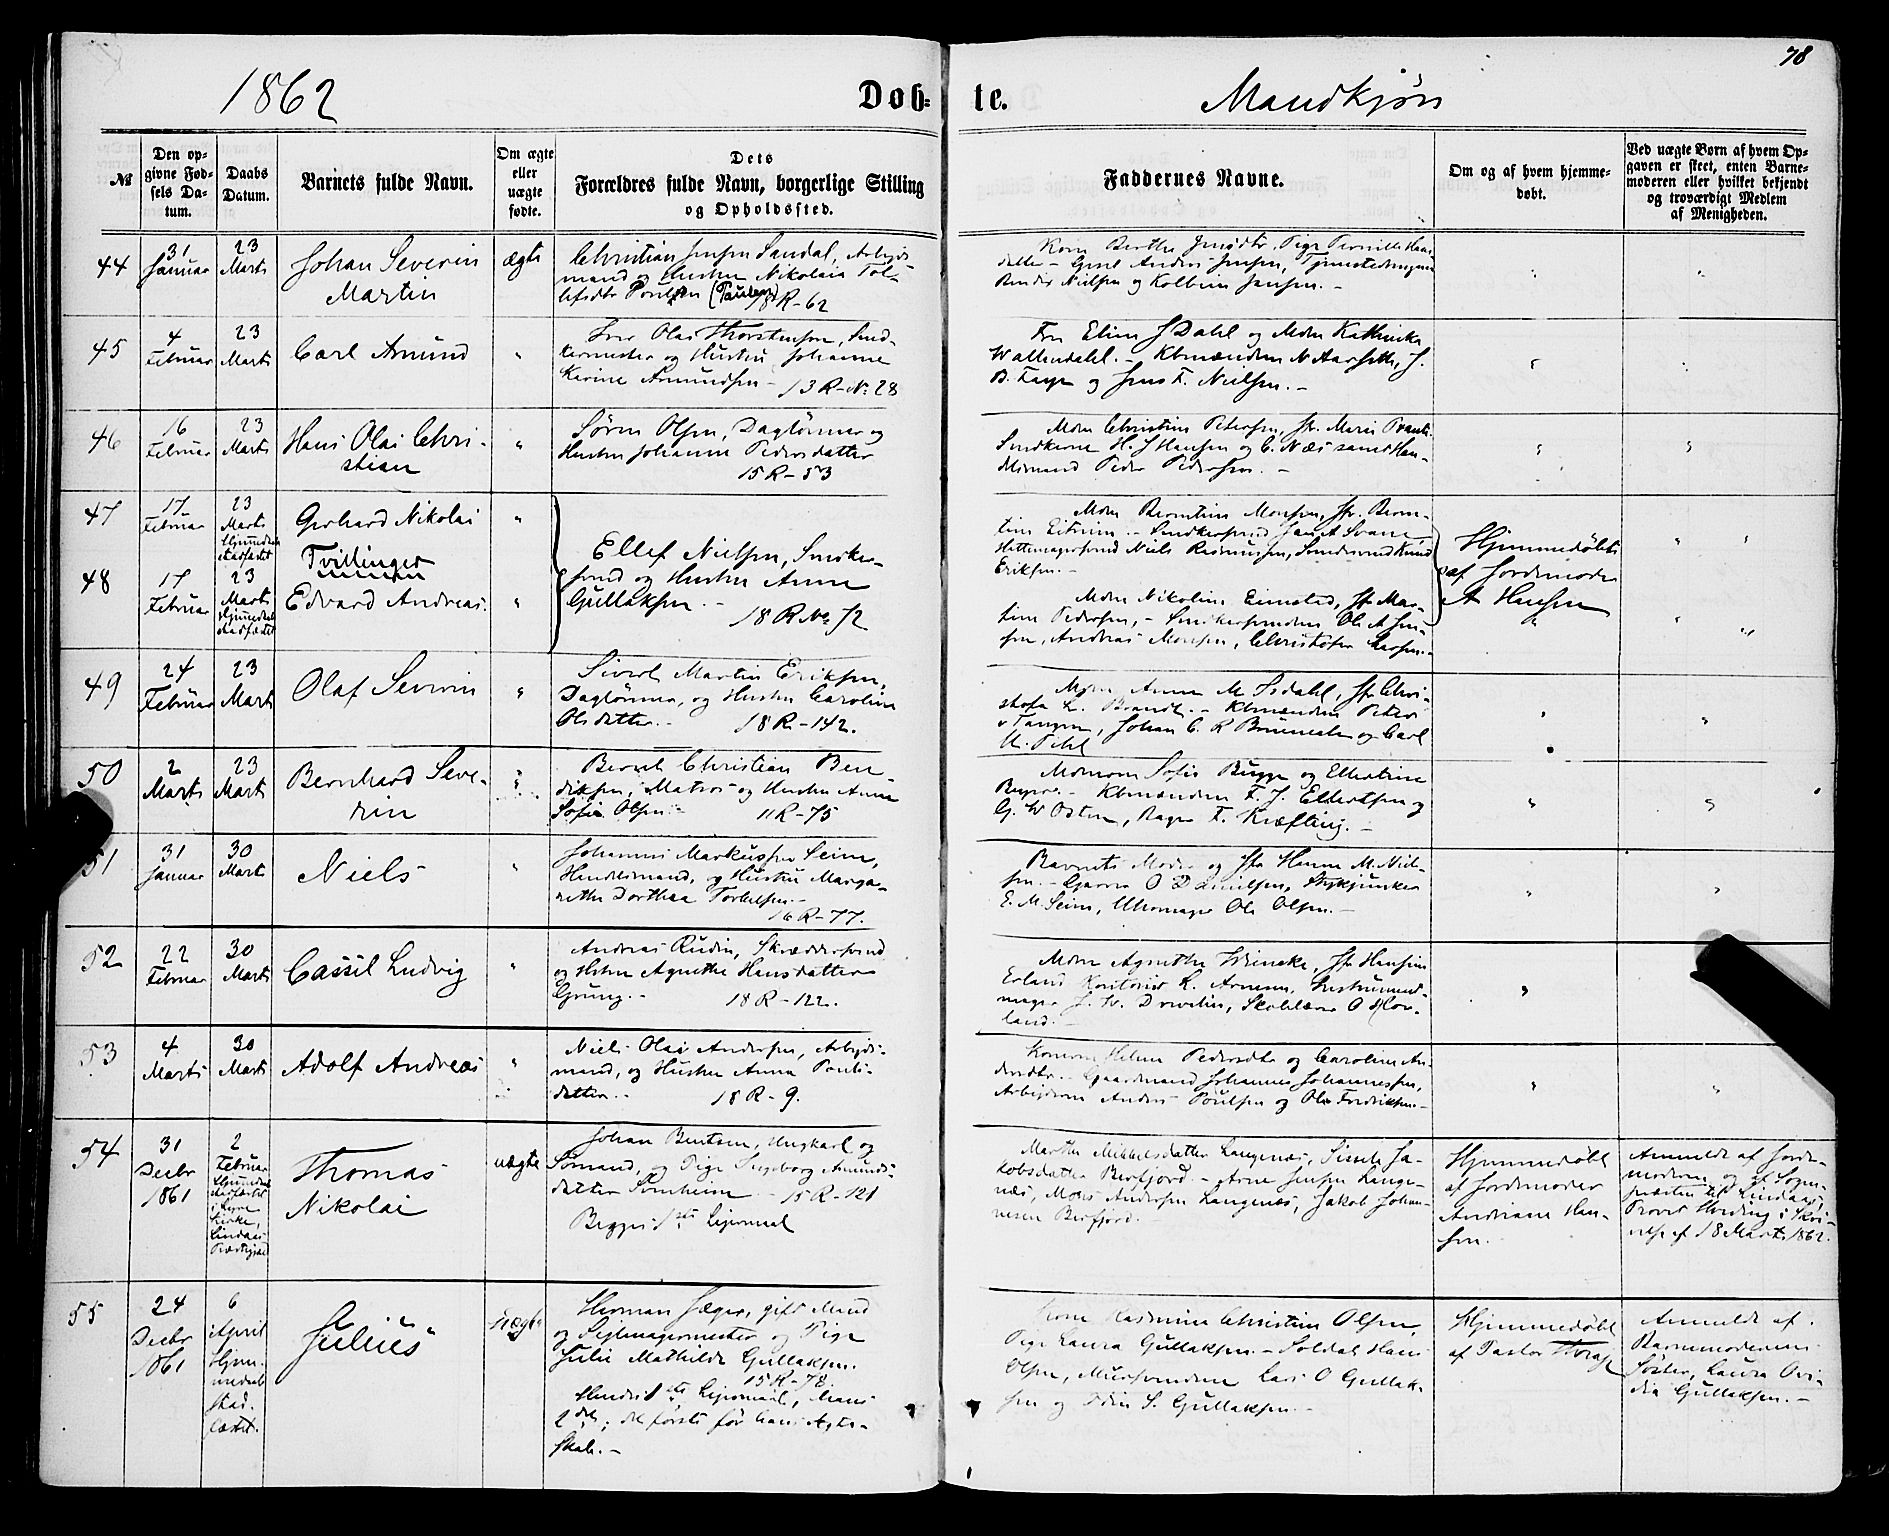 78
1862
Døb-
te.
Mandkjøn
№
Den op-
givne Fød-
sels Da-
tum.
Daabs
Datum.
Barnets fulde Navn.
Om ægte
eller
uægte
fødte.
Dets
Forældres fulde Navn, borgerlige Stilling
og Opholdssted.
Faddernes Navne.
Om og af hvem hjemme-
døbt.
Ved uægte Børn af hvem Op-
gaven er skeet, enten Barne-
moderen eller hvilket bekjendt
og troværdigt Medlem
af Menigheden.
44
31
Januar
23
Marts
Johan Severin
Martin
ægte
Christian Jensen Sandal, Arbejds-
mand og Hustru Nikolaia
(Paulsen)
18 R-62
Kone Berthe Pige Pernille Hans-
datter - Anders Jensen,
Nielsen og Kolbein Jensen. -
45
4
Februar
23
Marts
Carl Amund
"
Iver Olai Thorstensen, Sned-
kermester og Hustru Johanne
Karine Amundsen - 13 R-No 28
Fru Eline J Dahl og Mdm Kathinka
Wallendahl. - Kbmændene N Aarseth, J.
og Jens F. Nielsen. -
46
16
Februar
23
Marts
Hans Olai Chri-
stian
"
Søren Olsen, Dagtønner og
Hustru Johanne Pedersdatter
15 R-53
Mdm Christine Petersen, Jfr. Marie
Snedkerne H. J Hansen og C. Næs samt Han-
delsmand Peder Pedersen. -
47
17
Februar
23
Marts
Hjemmedaab
stadfæstet
Gerhard Nikolai
"
Tvillinger
48
17
Februar
23
Marts
Hjemmedaab
stadfæstet
Edvard Andreas
"
Ellef Nielsen, Snedker-
svend og Hustru Anne
Gullaksen. -
18 R No 72
Mdm Berentine Monsen, Jfr. Beren-
tine - Snedkersvend Jan A Svane,
Hattemagersvend Niels Rasmussen, Smedesvend Knud
Eriksen. -
Mdm Nikoline Jfr Mar-
tine Pedersen, - Snedkersvendene Ole A Jen-
sen, Andreas Monsen, Christofer Larsen. -
Hjemmedøbte
af Jordemoder
A Hansen
49
24
Februar
23
Marts
Olaf Severin
"
Sivert Martin Eriksen,
Dagtønner, og Hustru Caroline
Olsdatter. - 18 R-142.
Mdm Anne M. Isdahl, Jfr Chri-
stofa L. Brandt. - Kbmændene Peter
v Tangen, Johan C. R og Carl
50
2
Marts
23
Marts
Bernhard Seve-
rin
"
Berent Christian Ben-
diksen, Matros og Hustru Anne
Sofie Olsen - 11 R-75
Sofie Bugge og Ellertine
Kbmændene F. J. Ellertsen og
G. W Osten, Bager F. Kræfting. -
51
31
Januar
30
Marts
Niels
"
Johannes Markussen Seim,
Handelsmand, og Hustru Marga-
rethe Dorthea Torkelsen. -
16 R-77.
Barnets Moder og Jfr Hanne M. Niel-
sen. - O Danielsen, Stykjunker
E. M. Seim, Uhrmager Ole Olsen. -
52
22
Februar
30
Marts
Cassil Ludvig
"
Andreas Rudin, Skræddersvend
og Hstru Agnethe Hansdatter
Grung. - 18 R-122.
Mdm Agnethe Wineke, Jfr Hansine
Erland Kontorist L. Arnesen, Instrument-
mager J. W. Skolelærer O Hov-
land. -
53
4
Marts
30
Marts
Adolf Andreas
"
Niels Olai Andersen, Arbejds-
mand, og Hustru Anna Pouls-
datter. - 18 R-9.
Konerne Helene Pedersdtr og Caroline An-
dersdtr. - Gaardmand Johannes Johannessen,
Arbejderne Anders Poulsen og Ole Fredriksen. -
54
31
Decbr
1861
2
Februar
Hjemmedaab
stadfæstet
i Lyre
Kirke,
Lindaas
Præstegjeld
Thomas
Nikolai
uægte
Johan Bentsen, Ungkarl og
Sømand, og Pige Ingeborg Amunds-
datter Sørnheim - 15 R-121
Begges 1ste Lejermaal
Marthe Mikkelsdatter Langenæs, Sissele Ja-
kobsdatter Berfjord - Arne Jensen Lange-
næs, Mons Andersen Langenæs, Jakob Johan-
nesen Berfjord. -
Hjemmedøbt
af Jordemoder
Andriane Han-
sen.
Anmeldt af Jorde-
moderen og af Sogne-
præsten til Lindaas,
Provst Hvoding i Skri-
velse af 18 Marts 1862.
55
24
Decbr
1861
6
April
Hjem-
medaab
stad-
fæstet.
Julius
Uægte
Herman Jæger, gift Mand
og Sejlmagermester og Pige
Julie Mathilde Gullaksen.
15 R-78.
Hendes 1ste Lejermaal, hans
2det; det første før hans Ægte-
skab. -
Kone Rasmine Christine Olsen,
Pige Laura Gullaksen. - Soldat Hans
Olsen, Mursvendene Lars O Gullak-
sen og Edin S. Gullaksen. -
Hjemmedøbt
af Pastor
Anmeldt af
Barnemoderens
Søster, Laura Ovi-
dia Gullaksen. -